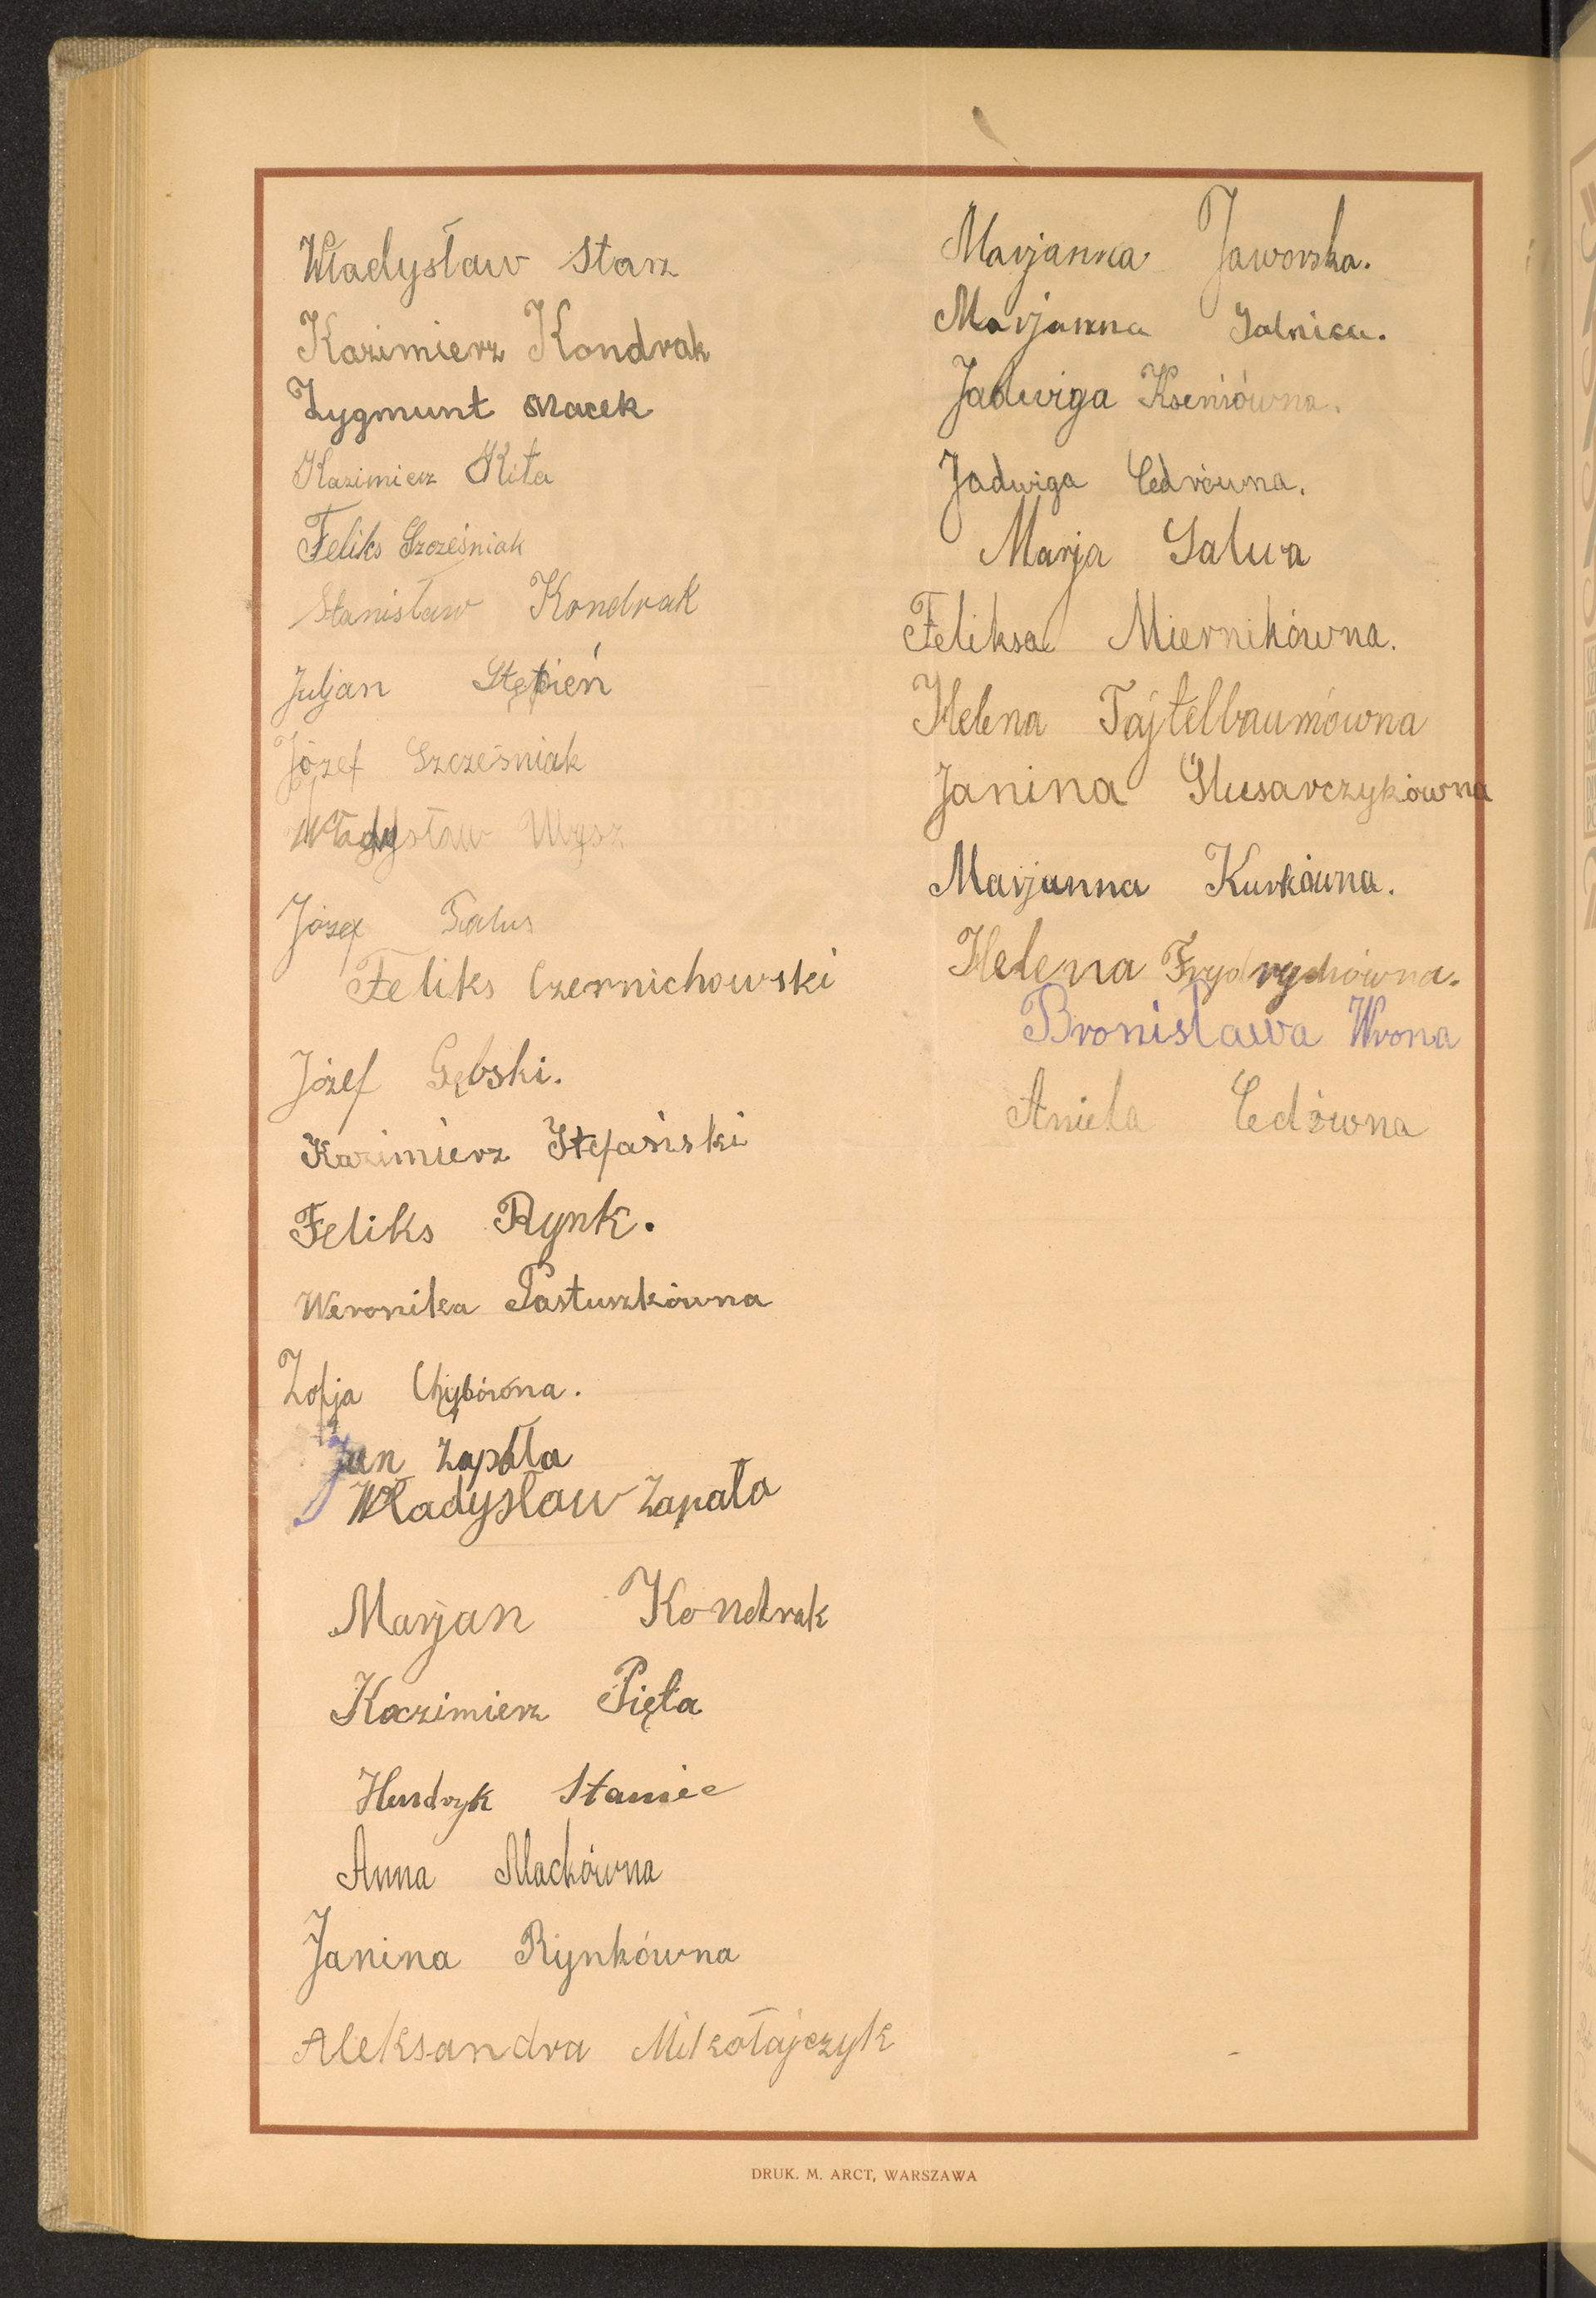 Władysław Starz
Kazimierz Kondrak
Zygmunt Macek
Kazimierz Kita
Feliks Szcześniak
Stanisław Kondrak
Juljan Stępień
Józef Szcześniak
Władysław Węsz
Józef Falus
Feliks Czernichowski
Józef Gębski.
Kazimierz Stefański
Feliks Rynk.
Weronika Pastuszkówna
Zofja
Jan Zapała
Władysław Zapała
Marjan Kondrak
Kazimierz Pięta
Hendryk Staniec
Anna Mackówna
Janina Rynkówna
Aleksandra Mikołajczyk
Marjanna Jaworska.
Marjanna Solnica.
Jadwiga Kseniówna.
Jadwiga Cedrówna.
Marja Salwa
Feliksa Miernikówna.
Helena Tajtelbaumówna
Janina Ślusarczykówna
Marjanna Kurkówna.
Helena Frydrychówna.
Bronisława Wrona
Aniela Cedrówna
DRUK. M. ARCT, WARSZAWA